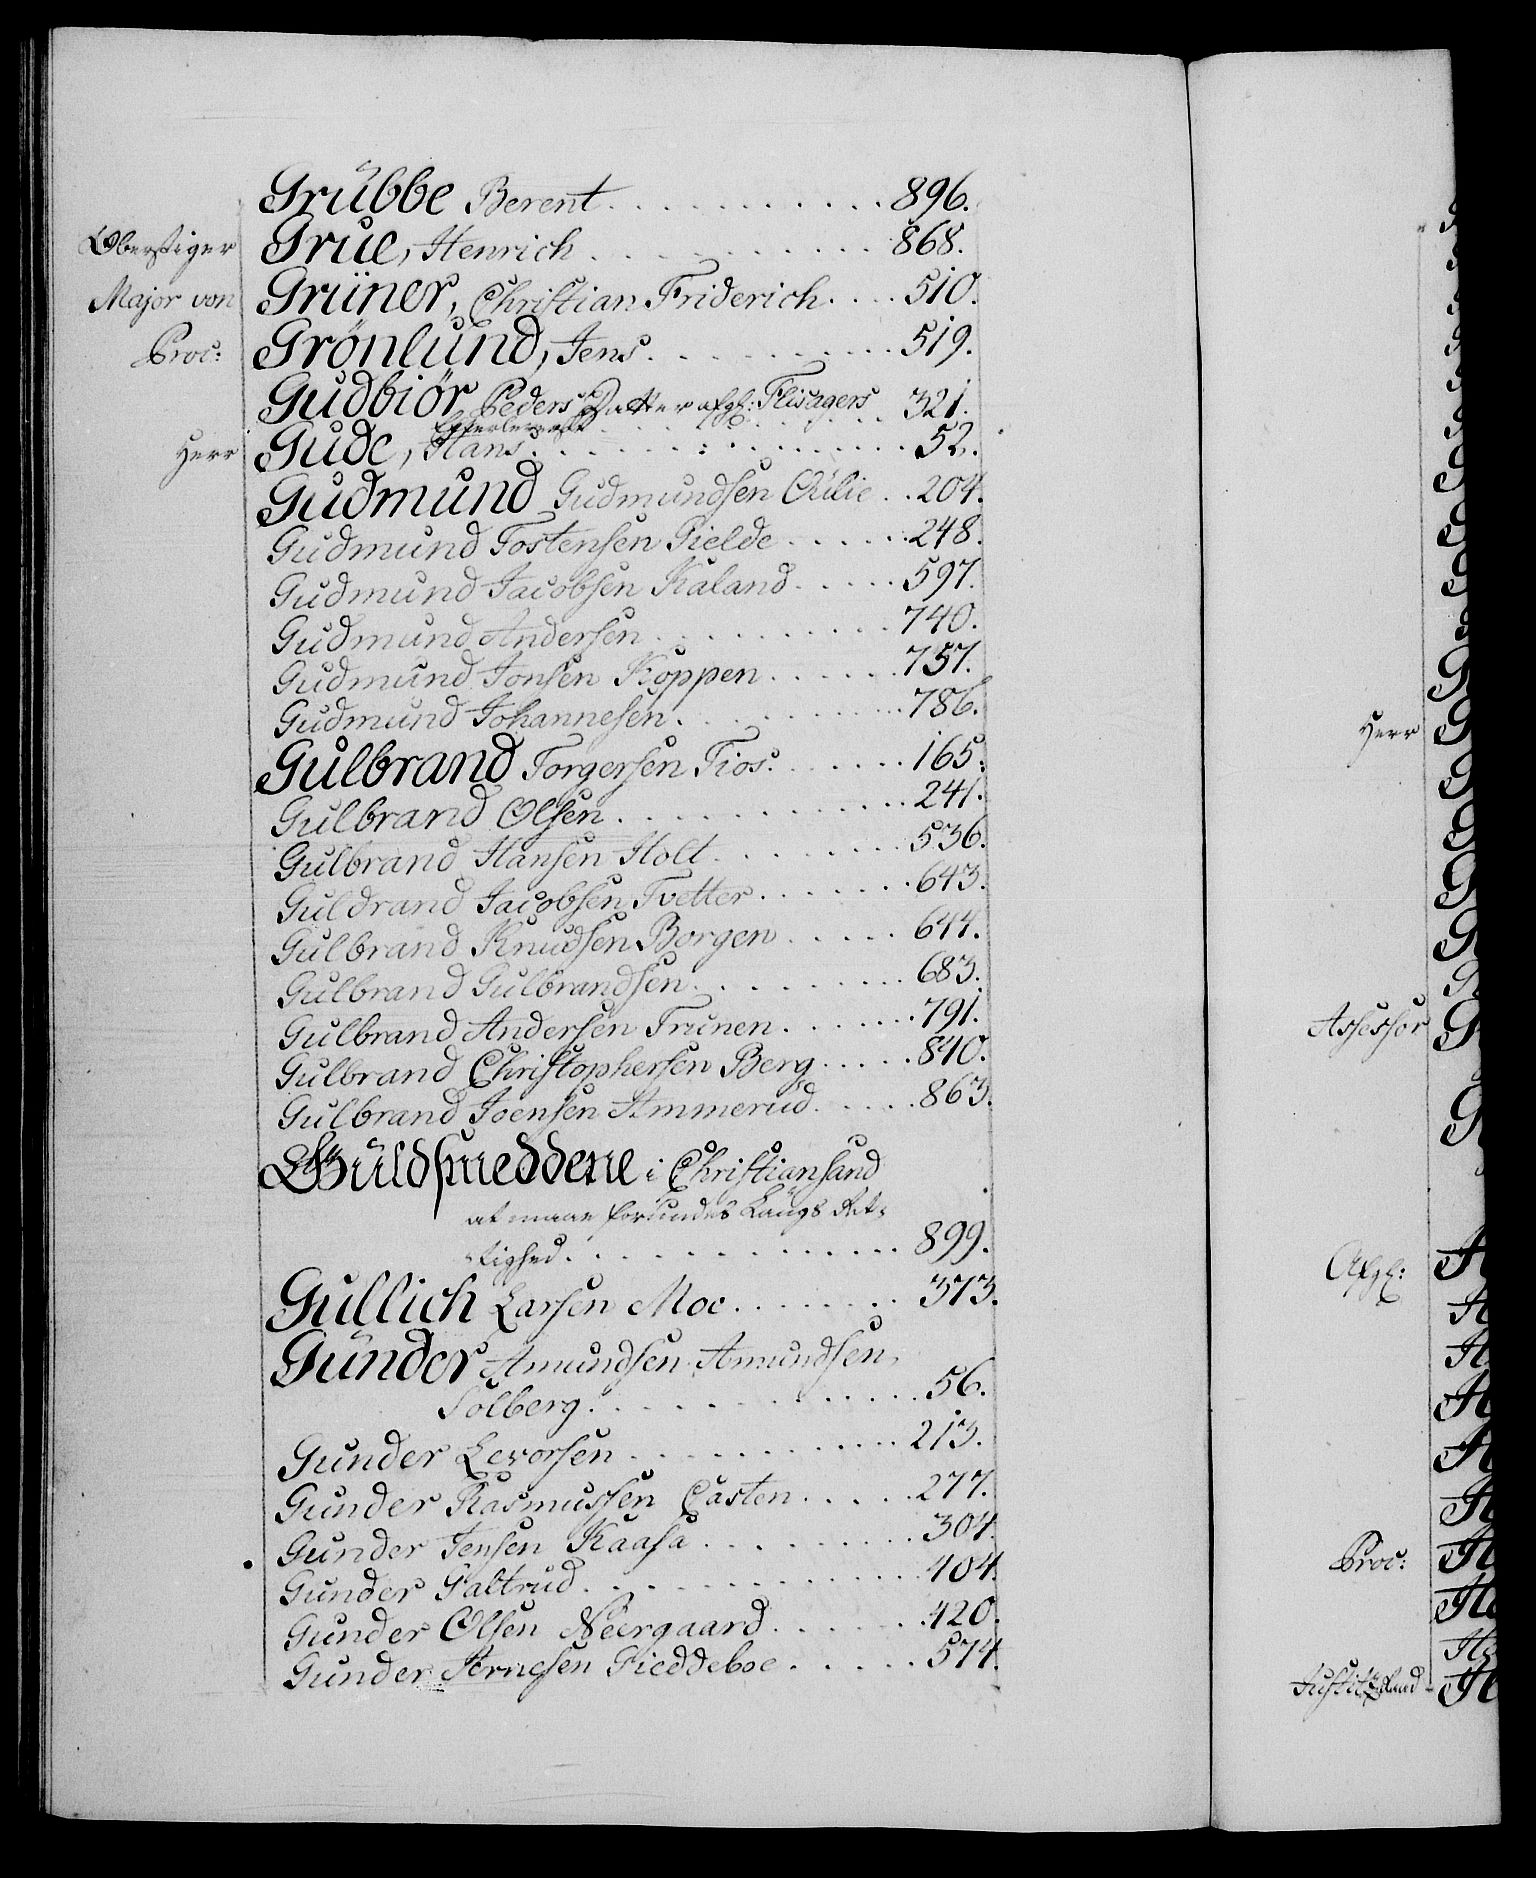 Grübbe Berent . . . . . . . . . . . 896.
Oberstiger Grue, Henrich . . . . . . . . . . 868.
Major von Grüner, Christian Friderich . . . . 510.
Proc: Grönlund, Jens . . . . . . . . . . 519.
Gudbiör Peders Datter afgl: Flisagers 321.
Efterleverske
Herr Gude, Hans . . . . . . . . . . . 52.
Gudmund Gudmundsen Oulie . . 204.
Gudmund Tostensen Tielde . . . . . 248.
Gudmund Jacobsen Kaland . . . . . 597.
Gudmund Andersen . . . . . . . . . 740.
Gudmund Jonsen Koppen . . . . . . 757.
Gudmund Johannesen . . . . . . . . 786.
Gulbrand Torgersen Tios . . . . . . 165.
Gulbrand Olsen . . . . . . . . . . 241.
Gulbrand Hansen Holt . . . . . . . 536.
Guldrand Jacobsen Tvetter . . . . . . 643.
Gulbrand Knudsen Borgen . . . . . 644.
Gulbrand Gulbrandsen . . . . . . . . 683.
Gulbrand Andersen Trunen . . . . . . 791.
Gulbrand Christophersen Berg . . . . . 840.
Gulbrand Joensen Ammerud . . . . . 863.
Guldsmeddene i Christiansand
at maae forundes Laugs Ret-
tighed . . . . . . . . . . . . . 899.
Gullich Larsen Moe . . . . . . . . 373.
Gunder Amundsen Amundsen
Solberg . . . . . . . . . . . . 56.
Gunder Levorsen . . . . . . . . . . 213.
Gunder Rasmussen Casten . . . . . 277.
Gunder Jensen Kaasa . . . . . . . . 304.
Gunder Saltrud . . . . . . . . . . . 404.
Gunder Olsen Neergaard . . . . . . 420.
Gunder Arnesen Fieddeboe . . . . . 574.
Herr
Assessor
Afgl:
Proc:
Justitz Raad